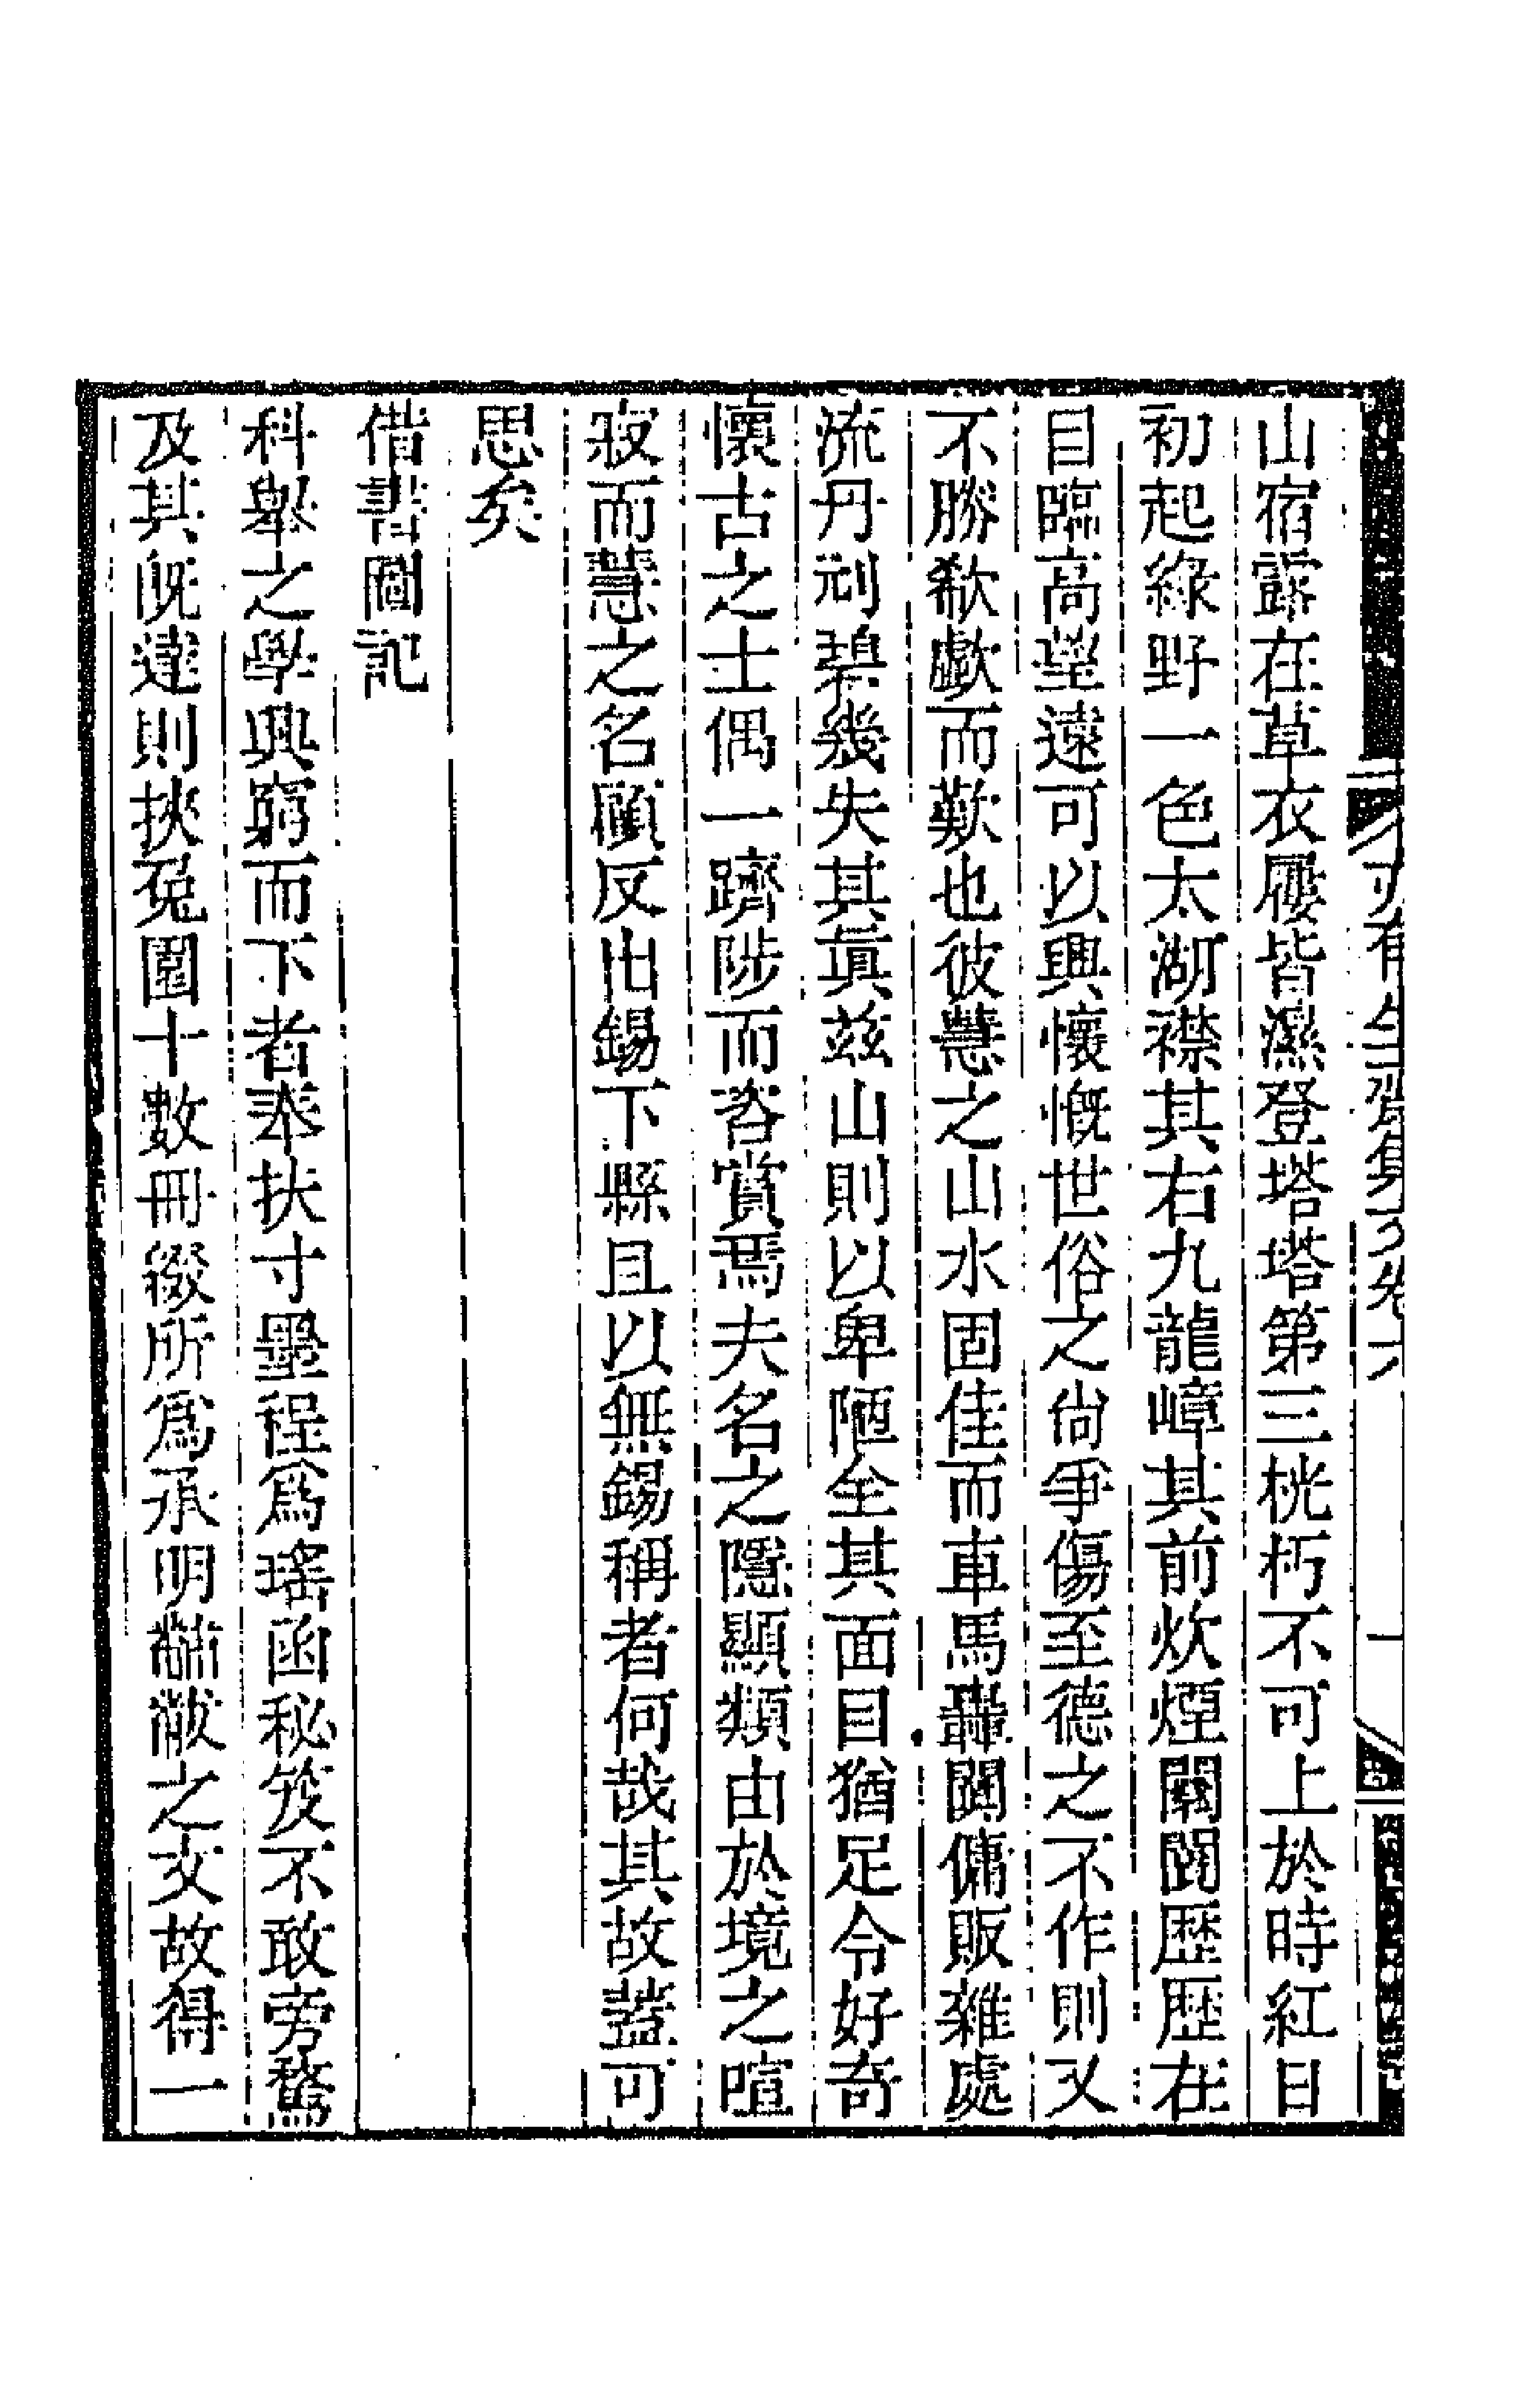 亦有生齋集文卷六 一
山宿露在草衣屨皆濕登塔塔第三桄朽不可上於時紅日
初起綠野一色太湖襟其右九龍嶂其前炊煙闤闠歷歷在
目臨高望遠可以興懷慨世俗之尙爭傷至德之不作則又
不勝欷歔而歎也彼慧之山水固佳而車馬轟闐傭販雜處
流丹刓碧幾失其眞兹山則以卑陋全其面目猶足令好奇
懷古之士偶一躋陟而咨賞焉夫名之隱顯類由於境之喧
寂而慧之名顧反出錫下縣且以無錫稱者何哉其故蓋可
思矣
借書圖記
科舉之學興窮而下者奉扶寸墨程爲瑤函秘笈不敢旁騖
及其旣達則挾兔園十數冊綴所爲承明黼黻之文故得一